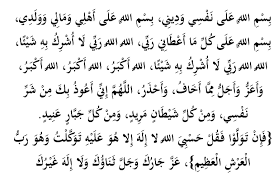 بِسْمِ اللهِ عَلَى نَفْسِي وَدِينِي، بِسْمِ اللهِ عَلَى أَهْلِي وَمَالِي وَوَلَدِي،
بِسْمِ اللهِ عَلَى كُلِّ مَا أَعْطَانِي رَبِّي، اللهُ اللهُ رَبِّي لَا أُشْرِكُ بِهِ شَيْئًا،
اللهُ اللهُ رَبِّي لَا أُشْرِكُ بِهِ شَيْئًا، اللهُ أَكْبَرُ، اللهُ أَكْبَرُ، اللهُ أَكْبَرُ،
وَأَعَزُّ وَأَجَلُّ مِمَّا أَخَافُ، وَأَحْذَرُ، اللَّهُمَّ إِنِّي أَعُوذُ بِكَ مِنْ شَرِّ
نَفْسِي، وَمِنْ كُلِّ شَيْطَانٍ مَرِيدٍ، وَمِنْ كُلِّ جَبَّارٍ عَنِيدٍ.
{فَإِنْ تَوَلَّوْا فَقُلْ حَسْبِيَ اللهُ لَا إِلَهَ إِلَّا هُوَ عَلَيْهِ تَوَكَّلْتُ وَهُوَ رَبُّ
الْعَرْشِ الْعَظِيمِ}، عَزَّ جَارُكَ وَجَلَّ ثَنَاؤُكَ وَلَا إِلَهَ غَيْرُكَ